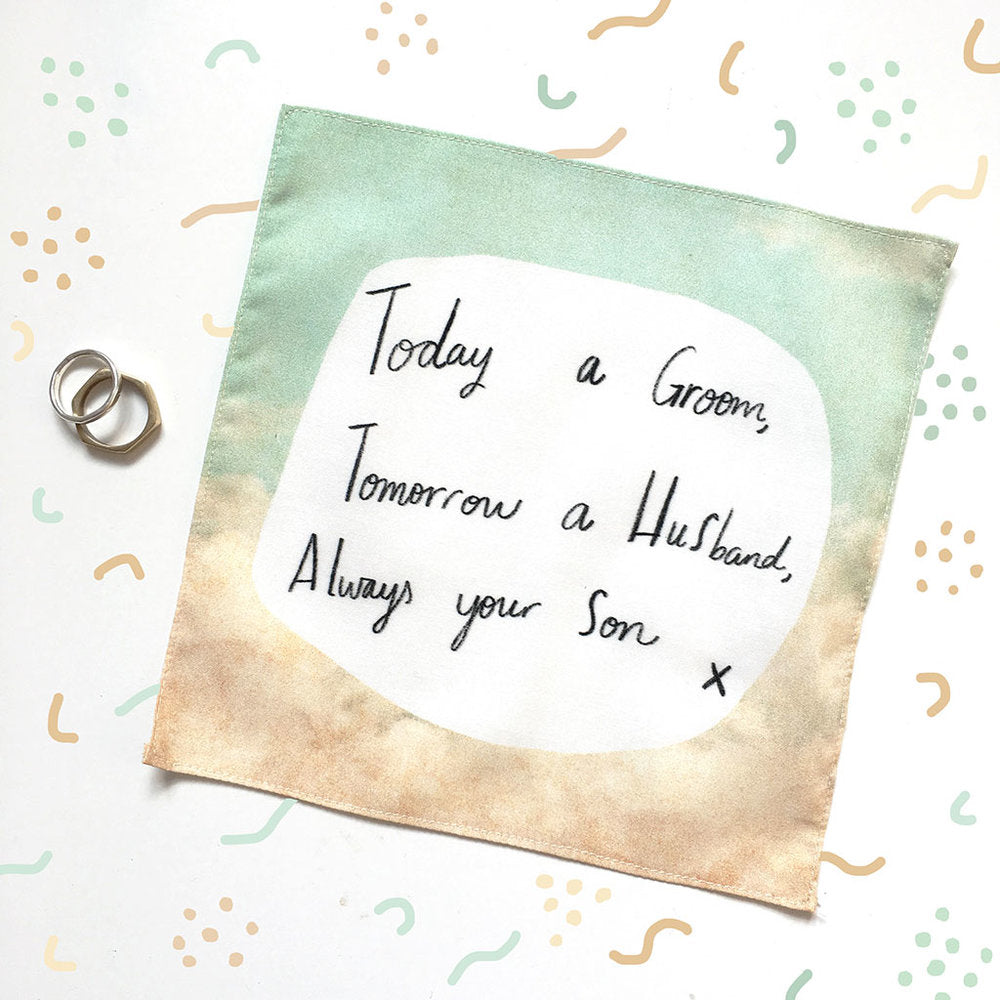 Today a Groom,
Tomorrow a Husband,
Always your Son
x